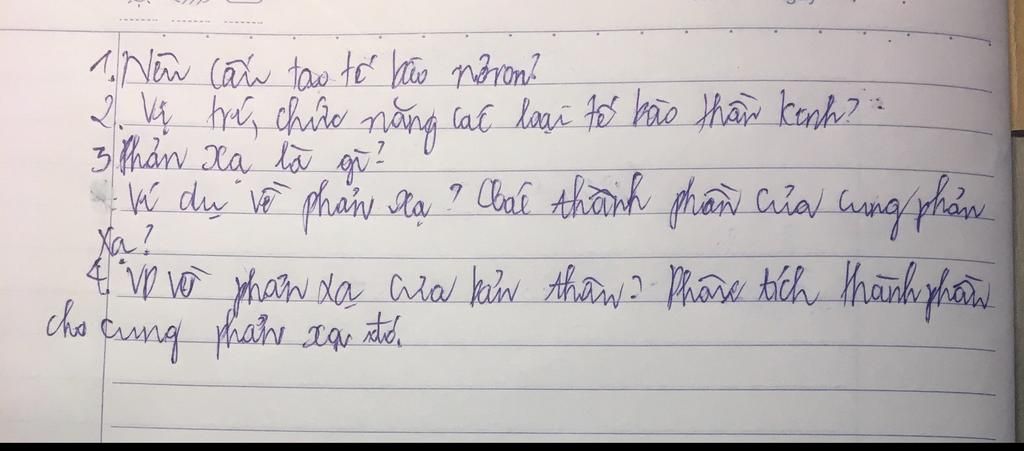 1. Nêu cấu tạo tế bào nơron?
2. Vị trí, chức năng các loại tế bào thần kinh?
3 Phản xạ là gì?
- Ví dụ về phản xạ? Các thành phần của cung phản
xạ?
4. VD về phản xạ của bản thân? Phân tích thành phần
cho cung phản xạ đó.